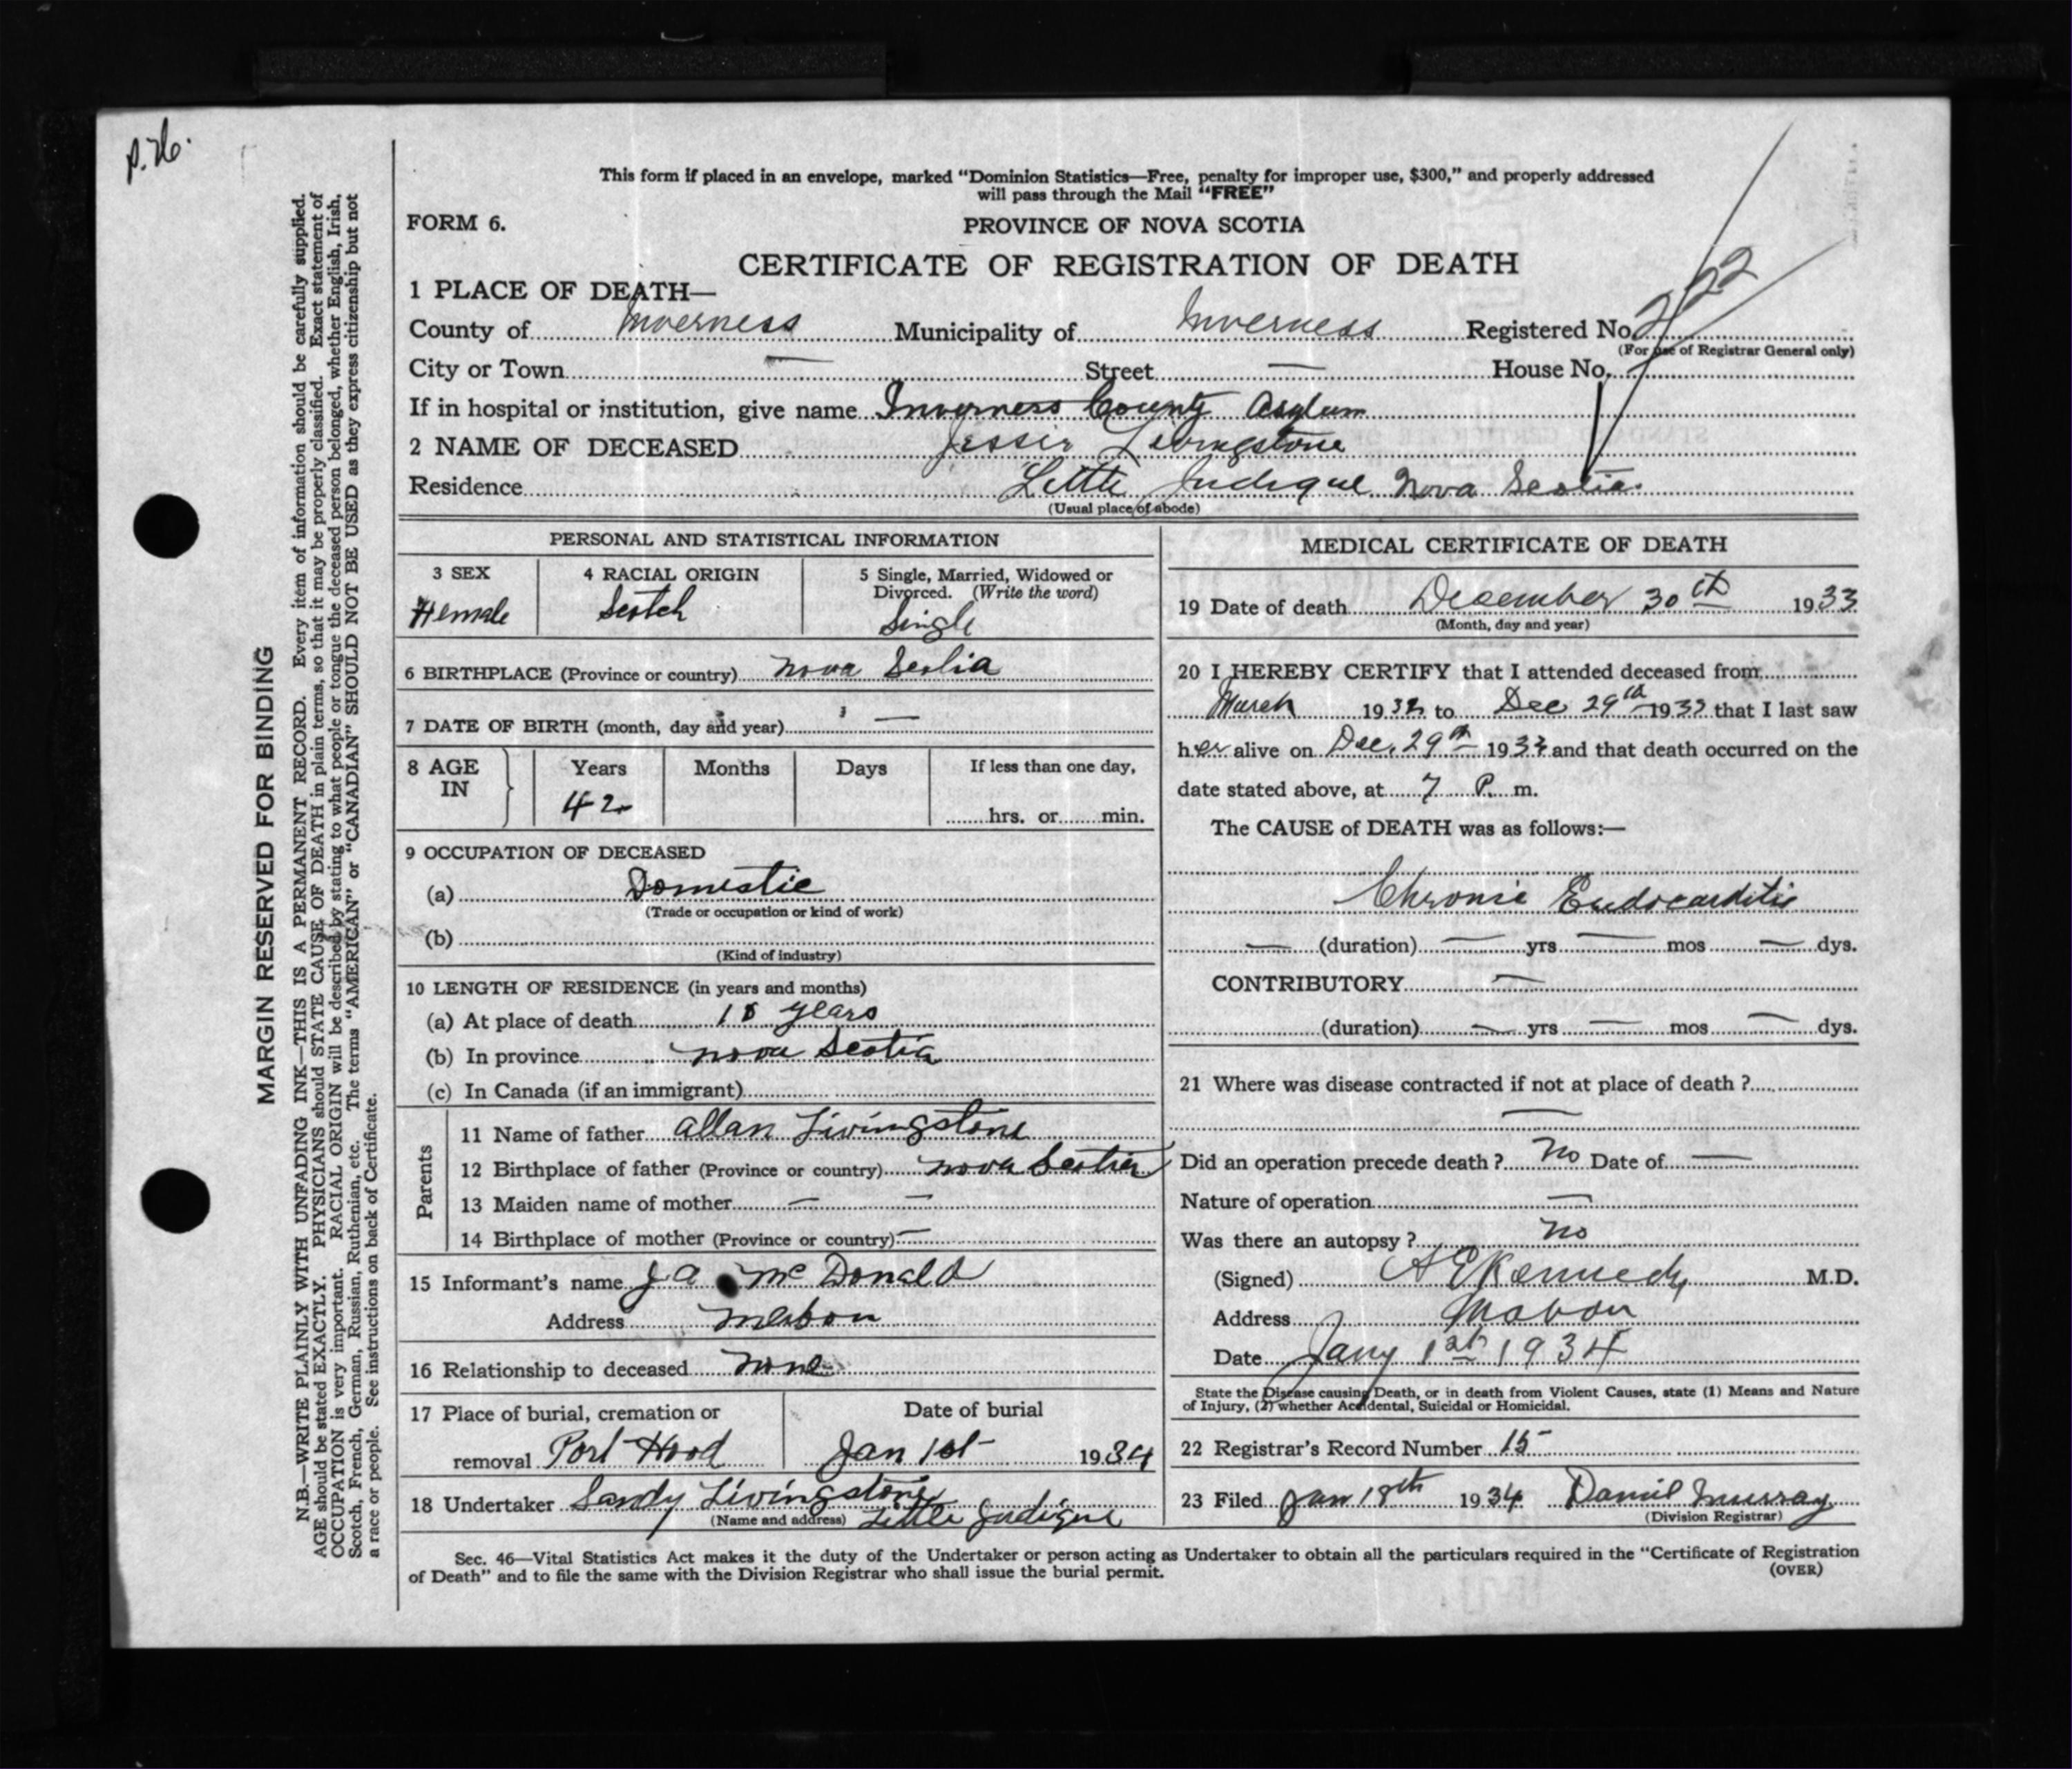 p. 26.
This form if placed in an envelope, marked “Dominion Statistics—Free, penalty for improper use, $300,” and properly addressed
will pass through the Mail “FREE”
FORM 6.
PROVINCE OF NOVA SCOTIA
CERTIFICATE OF REGISTRATION OF DEATH
1 PLACE OF DEATH—
County of Inverness Municipality of Inverness Registered No.
(For use of Registrar General only)
City or Town — Street — House No.
If in hospital or institution, give name Inverness County Asylum
2 NAME OF DECEASED Jessie Livingstone
Residence Little Judique Nova Scotia.
(Usual place of abode)
PERSONAL AND STATISTICAL INFORMATION
3 SEX
Female
4 RACIAL ORIGIN
Scotch
5 Single, Married, Widowed or
Divorced. (Write the word)
Single
6 BIRTHPLACE (Province or country) Nova Scotia
7 DATE OF BIRTH (month, day and year) —
8 AGE IN
Years Months Days If less than one day,
42 hrs. or min.
9 OCCUPATION OF DECEASED
(a) Domestic
(Trade or occupation or kind of work)
(b)
(Kind of industry)
10 LENGTH OF RESIDENCE (in years and months)
(a) At place of death years
(b) In province Nova Scotia
(c) In Canada (if an immigrant)
Parents
11 Name of father Allan Livingstone
12 Birthplace of father (Province or country) Nova Scotia
13 Maiden name of mother — —
14 Birthplace of mother (Province or country) —
15 Informant's name J A McDonald
Address Mabou
16 Relationship to deceased None
17 Place of burial, cremation or
removal Port Hood
Date of burial
Jan 1st 1934
18 Undertaker Sandy Livingstone
(Name and address) Little Judique
MEDICAL CERTIFICATE OF DEATH
19 Date of death December 30th 1933
(Month, day and year)
20 I HEREBY CERTIFY that I attended deceased from
March 1932 to Dec 29th 1933 that I last saw
her alive on Dec. 29th 1933 and that death occurred on the
date stated above, at 7 P. m.
The CAUSE of DEATH was as follows:—
Chronic Endocarditis
— (duration) — yrs — mos — dys.
CONTRIBUTORY —
(duration) — yrs — mos — dys.
21 Where was disease contracted if not at place of death ?
—
Did an operation precede death ? No Date of —
Nature of operation —
Was there an autopsy ? No
(Signed) A E Kennedy M.D.
Address Mabou
Date Jany 1st 1934
State the Disease causing Death, or in death from Violent Causes, state (1) Means and Nature
of Injury, (2) whether Accidental, Suicidal or Homicidal.
22 Registrar's Record Number 15
23 Filed Jan 18th 1934 Daniel Murray
(Division Registrar)
Sec. 46—Vital Statistics Act makes it the duty of the Undertaker or person acting as Undertaker to obtain all the particulars required in the “Certificate of Registration
of Death” and to file the same with the Division Registrar who shall issue the burial permit.
(OVER)
MARGIN RESERVED FOR BINDING
N.B.—WRITE PLAINLY WITH UNFADING INK—THIS IS A PERMANENT RECORD. Every item of information should be carefully supplied.
AGE should be stated EXACTLY. PHYSICIANS should STATE CAUSE OF DEATH in plain terms, so that it may be properly classified. Exact statement of
OCCUPATION is very important. RACIAL ORIGIN will be described by stating to what people or tongue the deceased person belonged, whether English, Irish,
Scotch, French, German, Russian, Ruthenian, etc. The terms “AMERICAN” or “CANADIAN” SHOULD NOT BE USED as they express citizenship but not
a race or people. See instructions on back of Certificate.